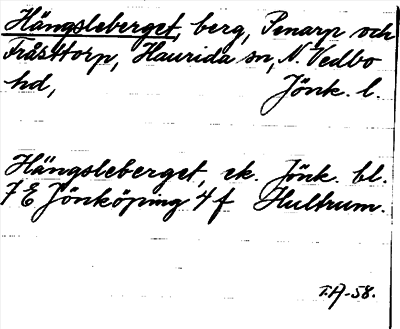 Hängsleberget, berg, Penarp och
Fråsttorp, Haurida sn, N. Vedbo
hd, Jönk. l.
Hängsleberget, ek. Jönk. bl.
7 E Jönköping 4 f Hultrum.
T.A-58.